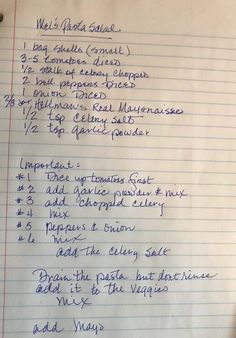 Mel's Pasta Salad
1 bag shells (small)
3-5 tomatoes diced
1/2 stalk of celery chopped
2 bell peppers Diced
1 onion Diced
2/3 Hellman's Real Mayonaisse
1/2 tsp Celery Salt
1/2 tsp garlic powder
Important:
#1 Dice up tomatoes first
#2 add garlic powder & mix
#3 add chopped celery
#4 mix
#5 Peppers & onion
#6 mix
add the Celery Salt
Drain the pasta but dont rinse
add it to the Veggies
mix
add Mayo